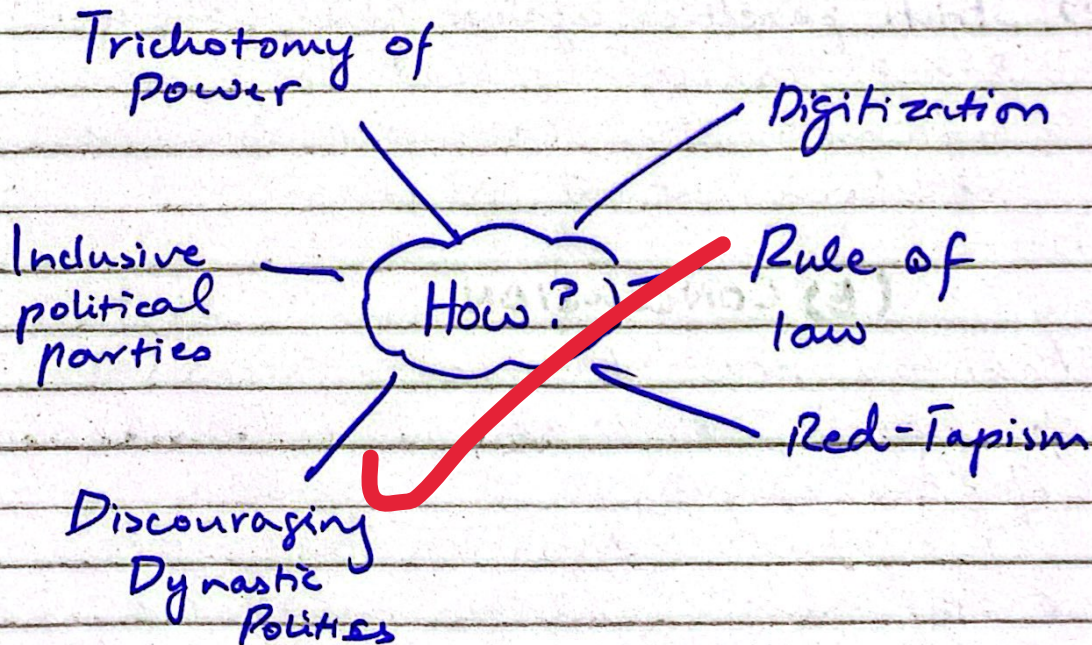 Trichotomy of
Power
Digitization
Inclusive
political
parties
How?
Rule of
law
Red-Tapism
Discouraging
Dynastic
Politics